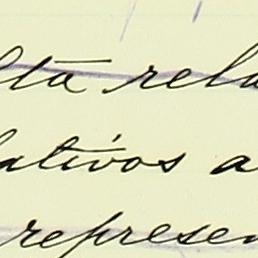 lta rela
lativos a
represen